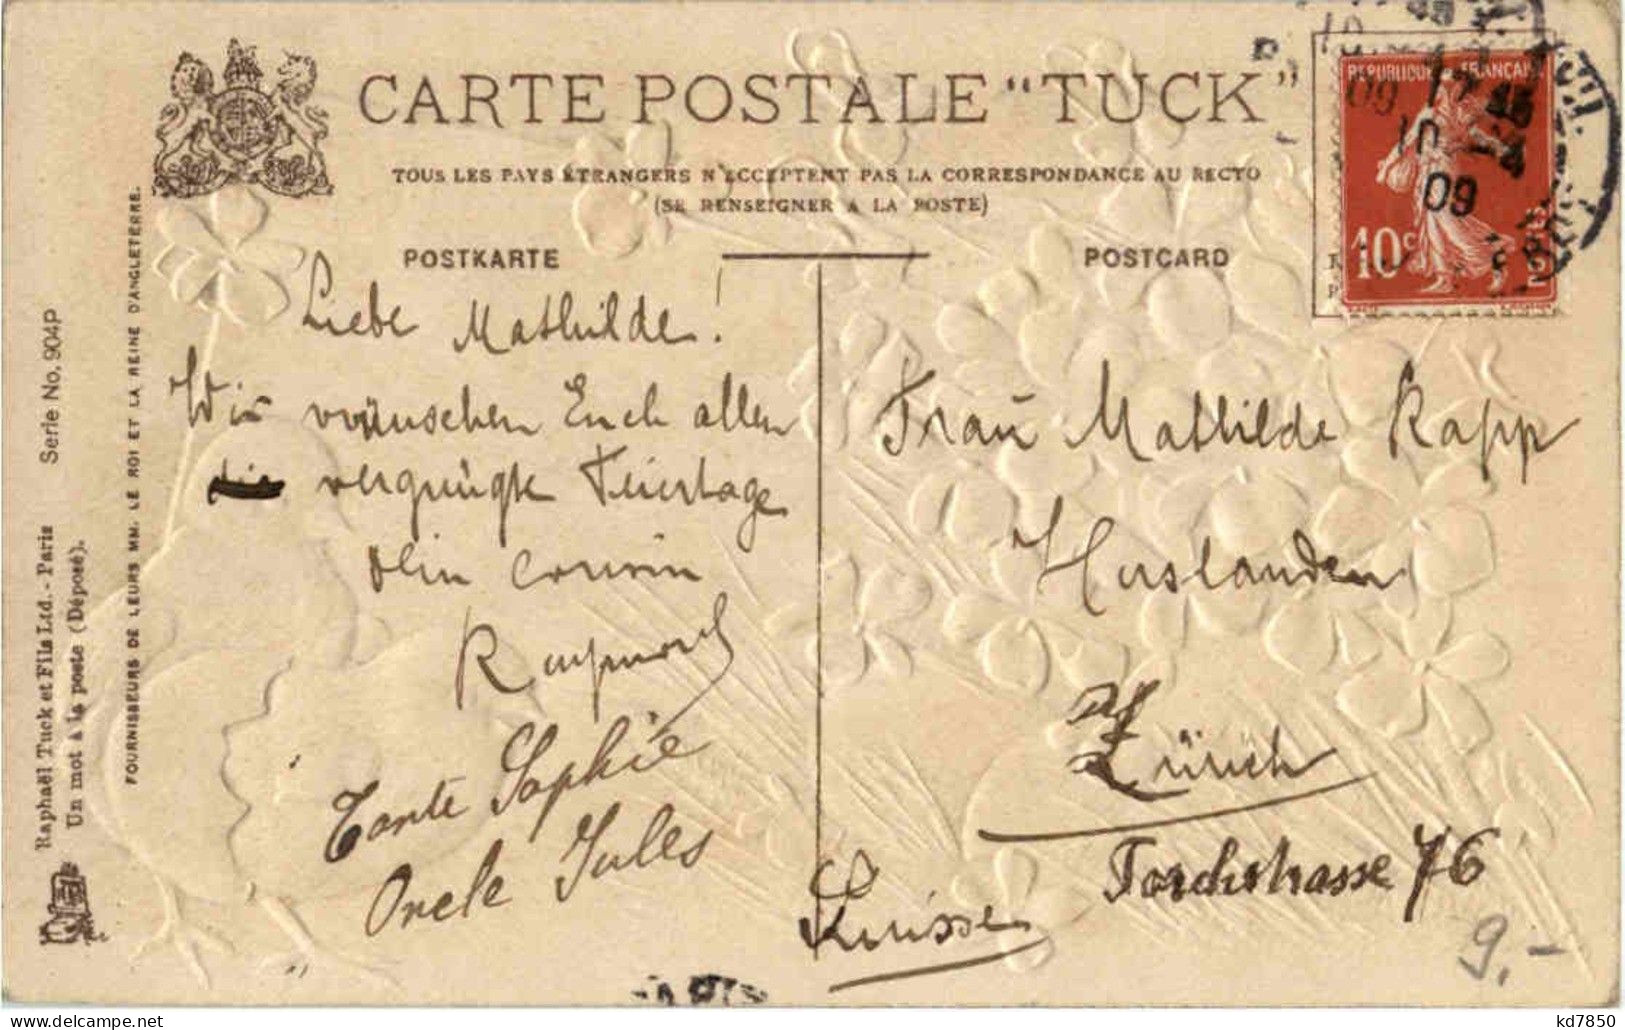 CARTE POSTALE "TUCK"
TOUS LES PAYS ÉTRANGERS N'ECCEPTENT PAS LA CORRESPONDANCE AU RECTO
(SE RENSEIGNER A LA POSTE)
POSTKARTE
POSTCARD
REPUBLIQUE FRANÇAISE
10c
17
10
09
Serie No. 904P
Raphaël Tuck et Fils Ltd. - Paris
Un mot à la poste (Déposé).
FOURNISSEURS DE LEURS MM. LE ROI ET LA REINE D'ANGLETERRE.
Liebe Mathilde!
Wir wünschen Euch allen
vergnügte Feiertage
dein cousin
Raymond
Tante Sophie
Oncle Jules
Frau Mathilde Rapp
Zürich
Torchstrasse 76
Suisse
9.-
kd7850